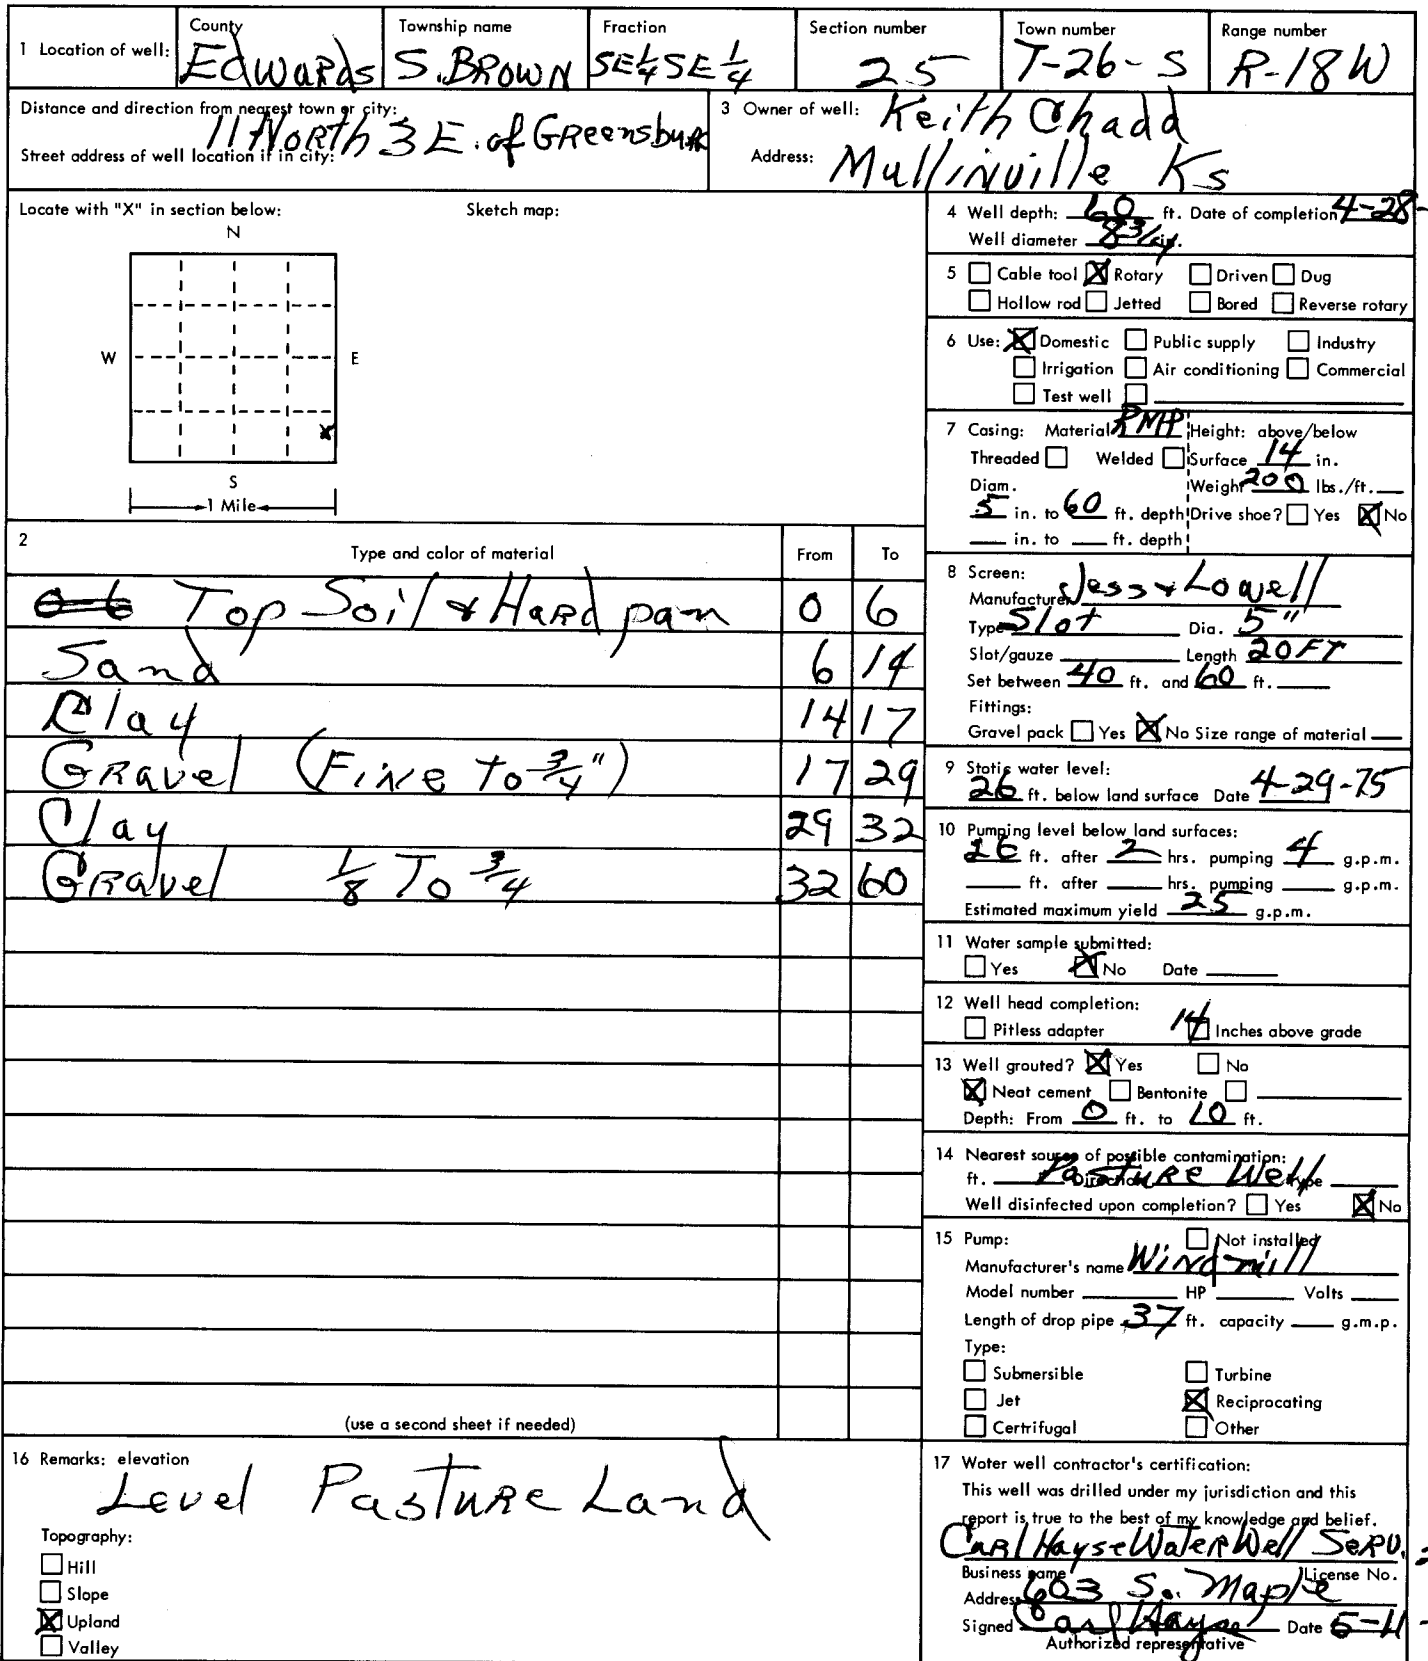 1 Location of well: County Edwards Township name S. BROWN Fraction SE 1/4 SE 1/4 Section number 25 Town number T-26-S Range number R-18W
Distance and direction from nearest town or city: 11 North 3 E. of Greensburg
Street address of well location if in city:
3 Owner of well: Keith Chadd
Address: Mullinville Ks
Locate with "X" in section below: Sketch map:
N
W E
X
S
1 Mile
2 Type and color of material From To
0-6 Top Soil & Hard pan 0 6
Sand 6 14
Clay 14 17
Gravel (Fine to 3/4") 17 29
Clay 29 32
Gravel 1/8 To 3/4 32 60
(use a second sheet if needed)
4 Well depth: 60 ft. Date of completion 4-28-
Well diameter 8 3/4 in.
5 Cable tool X Rotary Driven Dug
Hollow rod Jetted Bored Reverse rotary
6 Use: X Domestic Public supply Industry
Irrigation Air conditioning Commercial
Test well
7 Casing: Material RMP Height: above/below
Threaded Welded Surface 14 in.
Diam. Weight 200 lbs./ft.
5 in. to 60 ft. depth Drive shoe? Yes X No
in. to ft. depth
8 Screen:
Manufacturer Jess & Lowell
Type Slot Dia. 5"
Slot/gauze Length 20 FT
Set between 40 ft. and 60 ft.
Fittings:
Gravel pack Yes X No Size range of material
9 Static water level:
26 ft. below land surface Date 4-29-75
10 Pumping level below land surfaces:
26 ft. after 2 hrs. pumping 4 g.p.m.
ft. after hrs. pumping g.p.m.
Estimated maximum yield 25 g.p.m.
11 Water sample submitted:
Yes X No Date
12 Well head completion:
Pitless adapter 14 Inches above grade
13 Well grouted? X Yes No
X Neat cement Bentonite
Depth: From 0 ft. to 10 ft.
14 Nearest source of possible contamination:
ft. Direction Pasture Well Type
Well disinfected upon completion? Yes X No
15 Pump: Not installed
Manufacturer's name Windmill
Model number HP Volts
Length of drop pipe 37 ft. capacity g.m.p.
Type:
Submersible Turbine
Jet X Reciprocating
Certrifugal Other
16 Remarks: elevation
Level Pasture Land
Topography:
Hill
Slope
X Upland
Valley
17 Water well contractor's certification:
This well was drilled under my jurisdiction and this
report is true to the best of my knowledge and belief.
Carl Hayse Water Well Serv.
Business name License No.
Address 603 S. Maple
Signed Carl Hayse Date 5-11-
Authorized representative